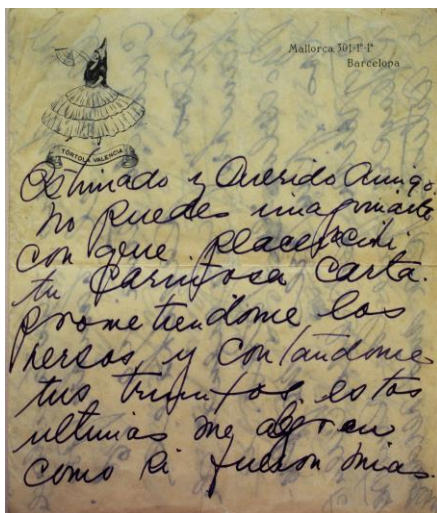 Mallorca 301-1º-1ª
Barcelona
TÓRTOLA VALENCIA
Estimado y Querido Amigo,
no puedes imaginarte
con que placer
tu cariñosa carta.
prometiendome los
versos, y contandome
tus triunfos, estos
ultimos me alegran
como si fueron mias.